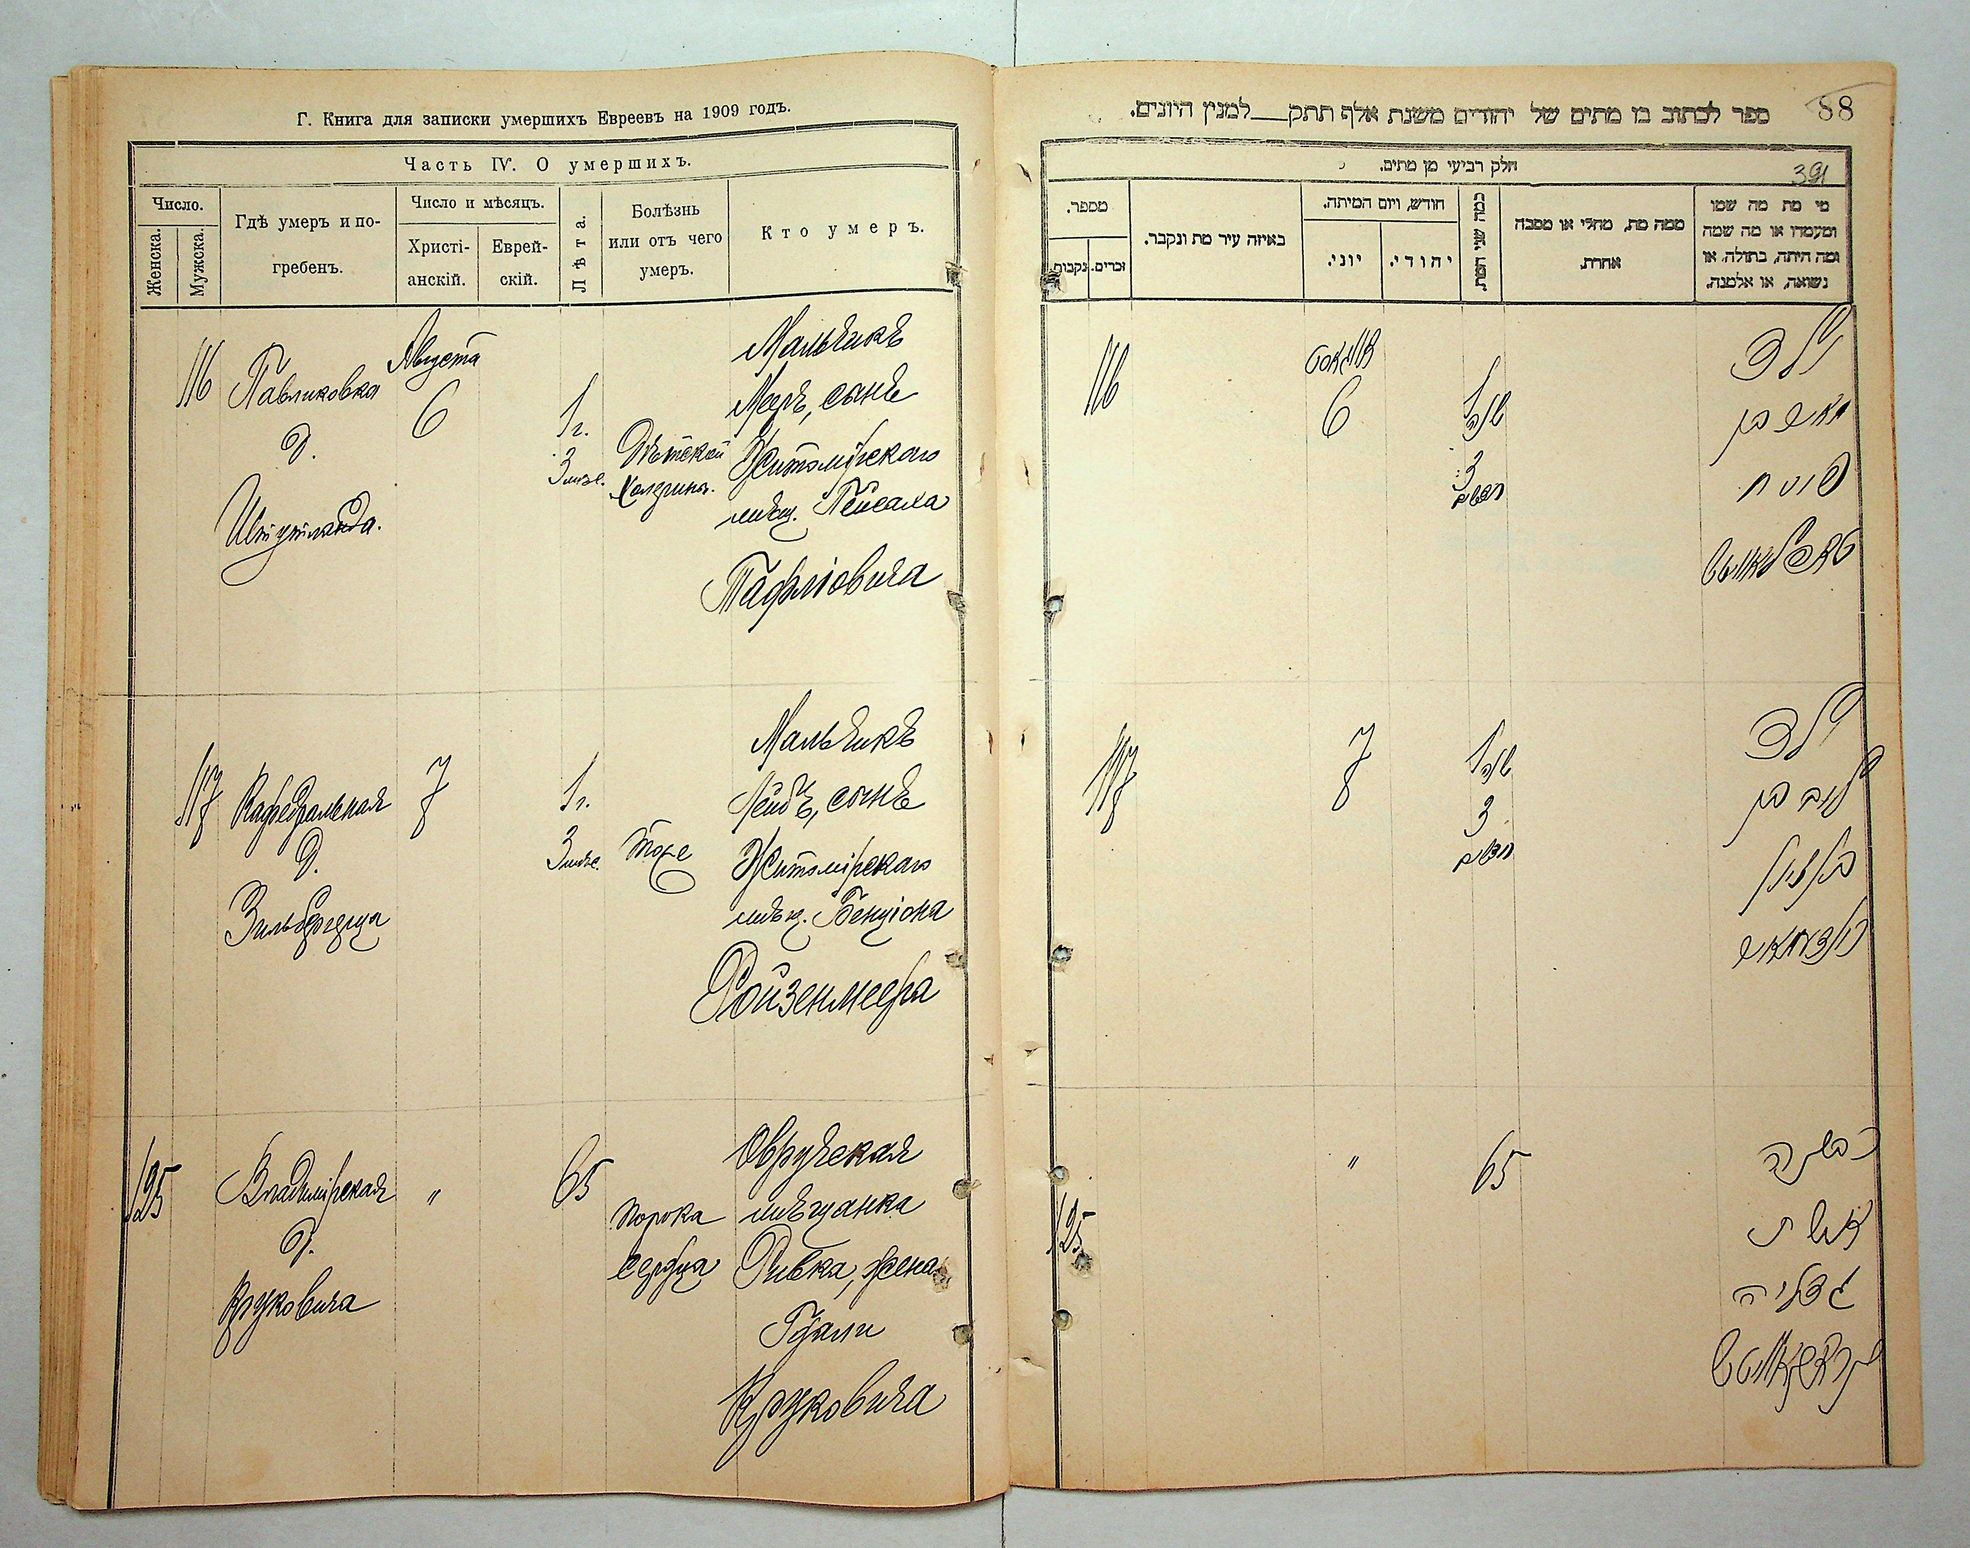 Г. Книга для записки умершихъ Евреевъ на 1909 годъ.
Часть IV. О умершихъ.
Число.
Женска.
Мужска.
Гдѣ умеръ и по-
гребенъ.
Число и мѣсяцъ.
Христі-
анскій.
Еврей-
скій.
Лѣта.
Болѣзнь
или отъ чего
умеръ.
Кто умеръ.
116
Павликовка
д.
Августа
6
1 г.
3 мѣс.
Дѣтской
Мальчикъ
Меръ, сынъ
Житомірскаго
мѣщ. Пейсаха
Тафліовича
117
Кафедральная
д.
Зильберберга
7
1 г.
3 мѣс.
тоже
Мальчикъ
Лейбъ, сынъ
Житомірскаго
мѣщ. Бенціона
Ройзенмеера
125
Владимірская
д.
Круковича
"
65
порока
сердца
Овручская
мѣщанка
Ривка, жена
Гдали
Круковича
88
ספר לכתוב בו מתים של יהודים משנת אלף תתק למנין היונים.
391
חלק רביעי מן מתים.
מספר.
נקבות.
זכרים.
באיזה עיר מת ונקבר.
חודש, ויום המיתה.
יוני.
יהודי.
כמה שני המת.
ממה מת, מחלי או מסבה
אחרת.
מי מת מה שמו
ומעמדו או מה שמה
ומה היתה, בתולה, או
נשואה, או אלמנה.
116
אווגוסט
6
1 שנה
3
חדשים
ילד
מאיר בן
פסח
117
7
1 שנה
3
חדשים
ילד
ליב בן
125
"
65
רבקה
אשת
גדליה